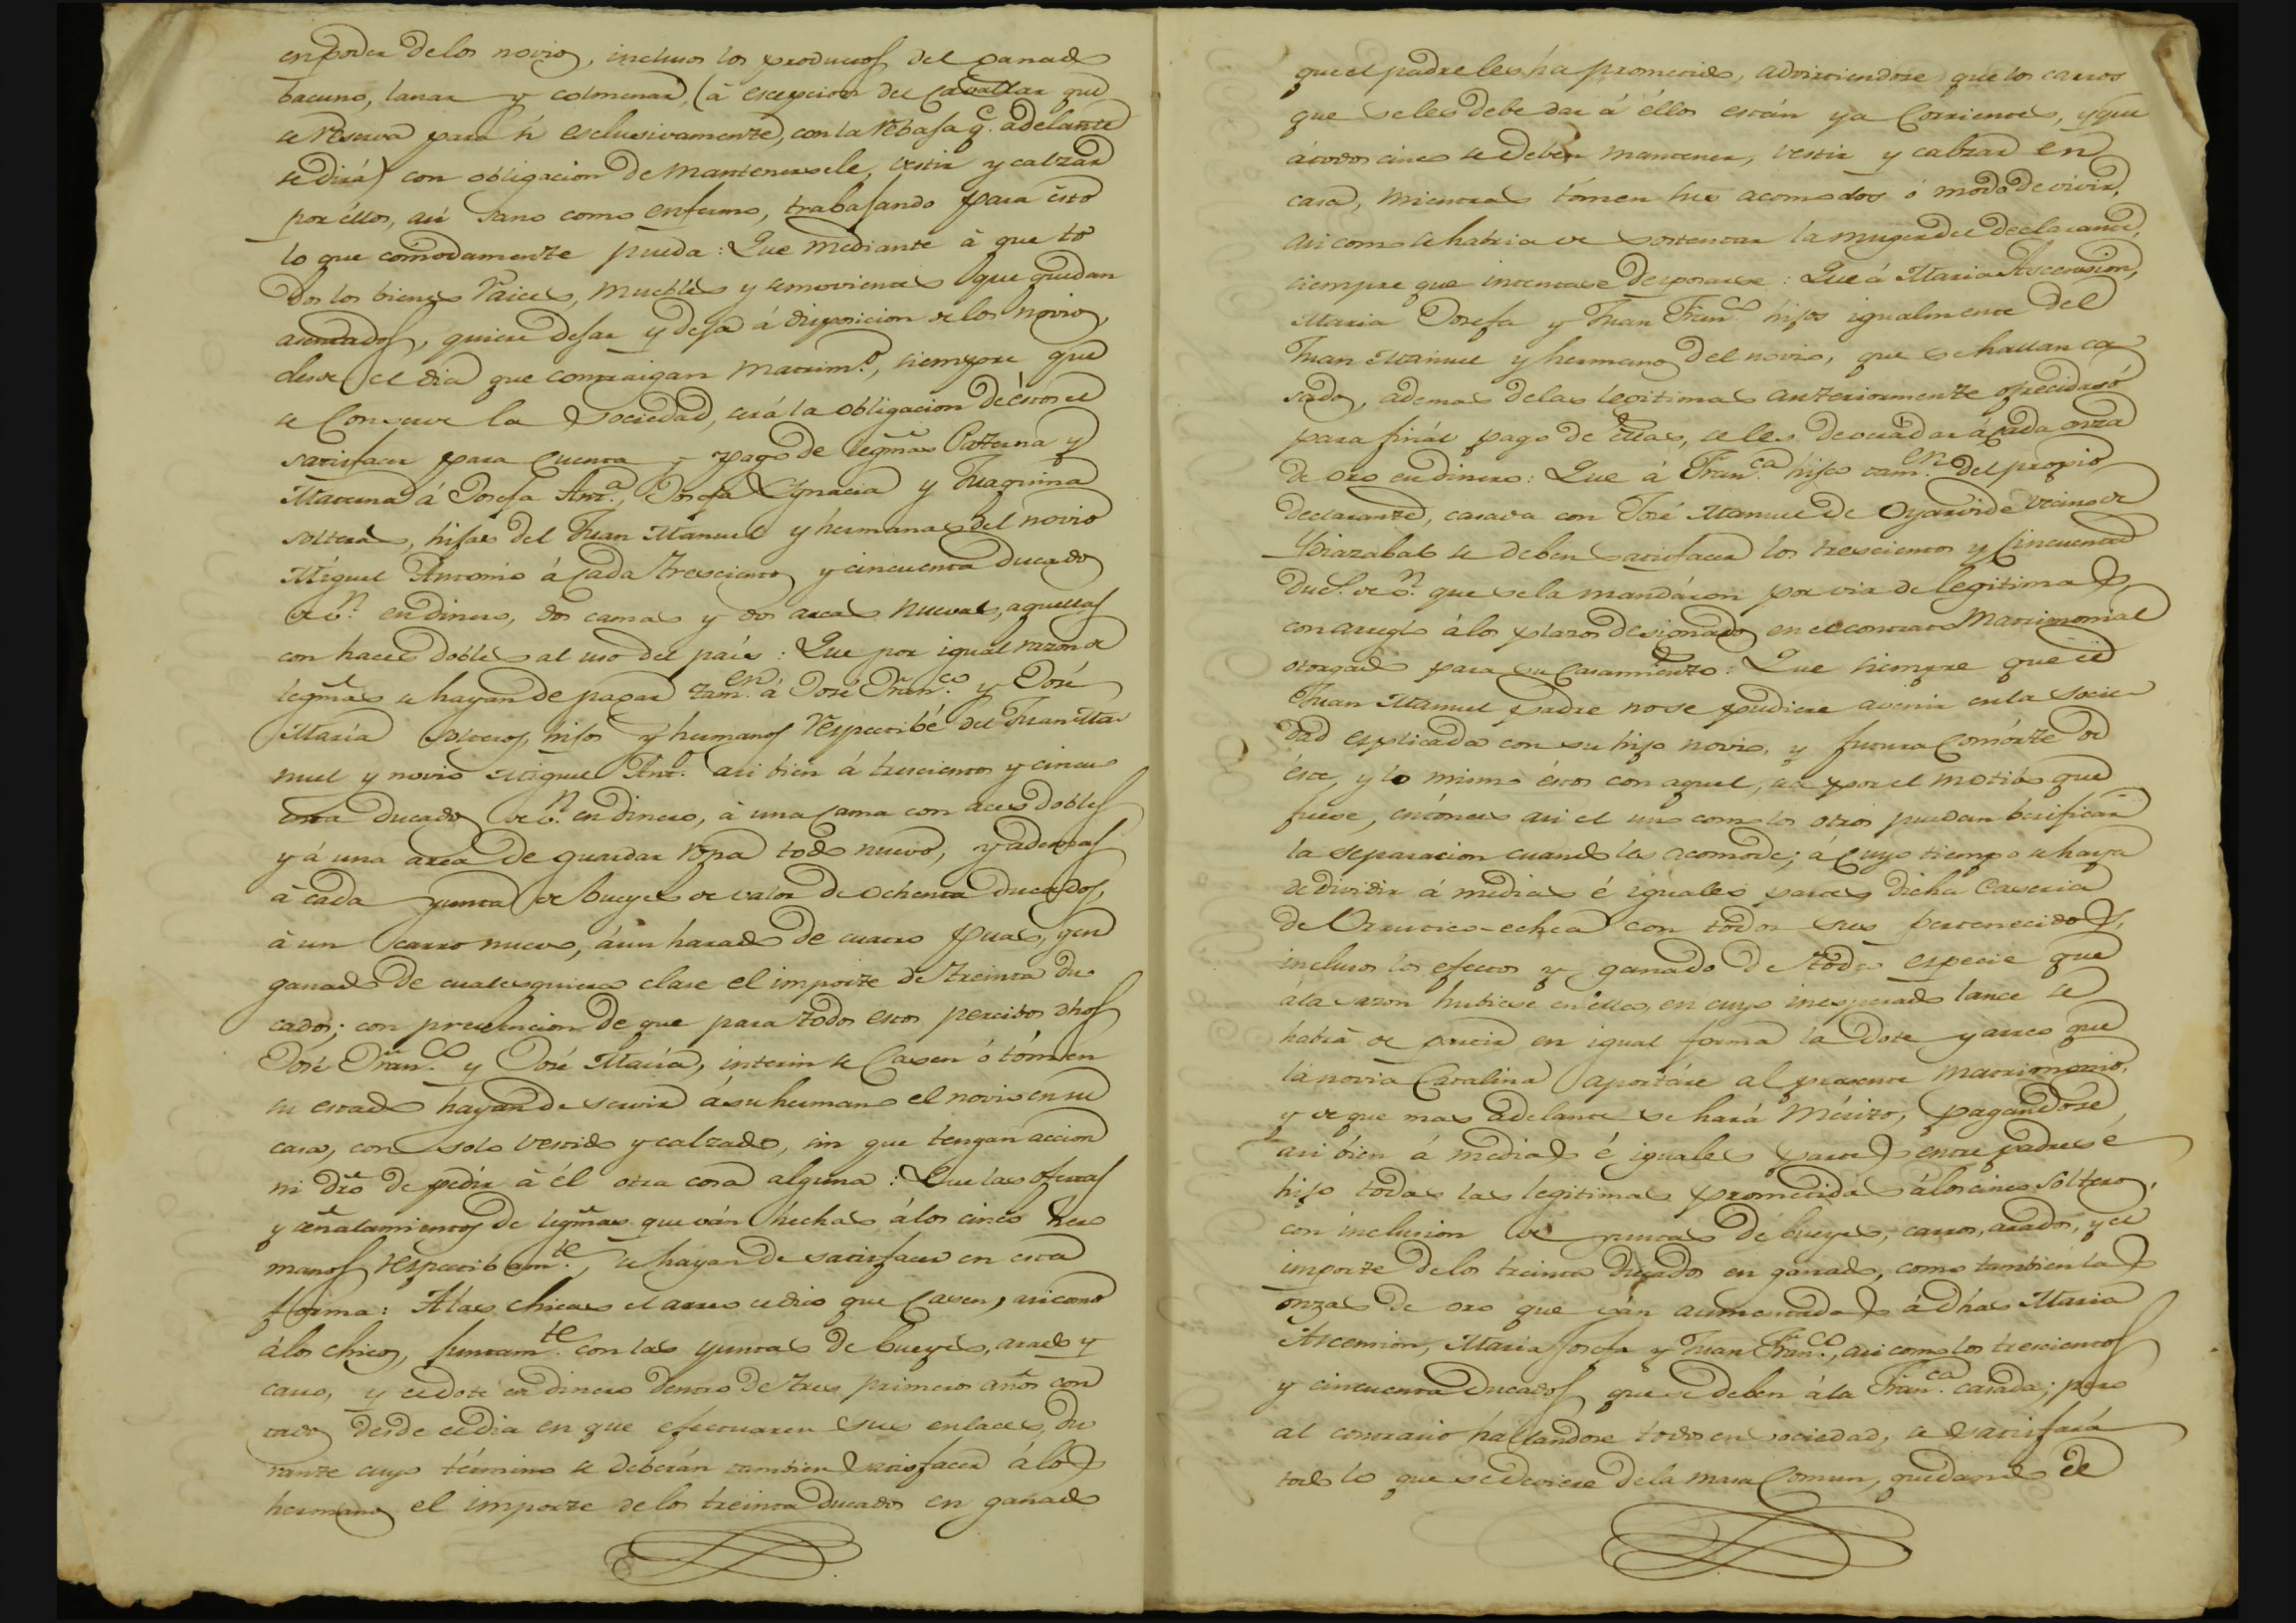 en poder de los novios, inclusos los productos del ganado
bacuno, lanar y colmenar, (á escepcion del Caballar que
se reserva para si esclusivamente, con la rebaja q.e adelante
se dirá) con obligacion de mantenersele, vestir y calzar
por éllos, asi sano como enfermo, trabajando para esto
lo que cómodamente pueda: Que mediante á que to
dos los bienes raices, muebles y semovientes que quedan
asentados, quiere dejar y deja á disposicion de los novios,
desde el dia que contraigan matrim.o, siempre que
se Conserve la Sociedad, será la obligacion de éstos el
satisfacer para Cuenta y pago de legmas Paterna y
Materna á Josefa Ant.a, Josefa Ygnacia y Juaquina
solteras, hijas del Juan Manuel y hermanas del novio
Miguel Antonio á Cada trescientos y cincuenta ducados
de v.n en dinero, dos camas y dos arcas nuevas, aquellas
con haces dobles al uso del país: Que por igual razon de
legmas se hayan de pagar tam.en á José Fran.co y José
María solteros, hijos y hermanos respectibé del Juan Ma
nuel y novio Miguel Ant.o asi bien á trescientos y cincu
enta ducados de v.n en dinero, á una Cama con aces dobles
y á una arca de guardar ropa todo nuevo, y ademas
á cada yunta de bueyes de valor de ochenta ducados,
á un Carro nuevo, á un harado de cuatro puas, y en
ganado de cualesquiera clase el importe de treinta du
cados; con prevencion de que para todos estos percibos dhos
José Fran.co y José María, interin se Casen ó tómen
su estado hayan de servir á su hermano el novio en su
casa, con solo vestido y calzado, sin que tengan accion
ni dro de pedir á él otra cosa alguna: Que las ofertas
y señalamientos de legmas que ván hechas á los cinco her
manos respectibam.te, se hayan de satisfacer en esta
forma: A las chicas el arreo el dia que Casen, asi como
á los chicos, juntam.te con las yuntas de bueyes, arado y
carro, y el dote en dinero dentro de tres primeros años con
tados desde el dia en que efectuaren sus enlaces, du
rante cuyo término se deberán tambien satisfacer á los
hermanos el importe de los treinta ducados en ganado
que el padre les ha prometido, advirtiendose que los carros
que se les debe dar á éllos están ya Corrientes, y que
á todos cinco se deben mantener, vestir y calzar en
casa, mientras tómen sus acomodos ó modo de vivir,
asi como se habria de sostentar la muger del declarante,
siempre que intentase desposarse: Que á Maria Ascension,
Maria Josefa y Juan Fran.co hijos igualmente del
Juan Manuel y hermanos del novio, que se hallan ca
sados, ademas de las legitimas anteriormente ofrecidas ó
para finál pago de éllas, se les deverá dar á Cada onza
de oro en dinero: Que á Fran.ca hija tam.en del propio
declarante, casada con José Manuel de Oyarvide vecino de
Ydiazabal se deben satisfacer los trescientos y Cincuenta
duc.s de v.n que se la mandáron por via de legitimas,
con arreglo á los plazos designados en el contrato Matrimonial
otorgado para su Casamiento: Que siempre que el
Juan Manuel padre no se pudiere avenir en la socie
dad esplicada con su hijo novio, y futura Comórte de
éste, y lo mismo éstos con aquel, sea por el motibo que
fuese, entónces asi el uno como los otros puedan berificar
la separacion cuando les acomode; á Cuyo tiempo se haya
de dividir á medias é iguales partes dicha Caseria
de Urrutico-echea con todos sus pertenecidos,
inclusos los efectos y ganado de toda especie que
á la sazon hubiese en élla, en cuyo inesperado lance se
habrá de partir en igual forma la dote y arreo que
la novia Catalina aportáre al presente matrimonio,
y de que mas adelante se hará mérito, pagandose
asi bien á medias é iguales partes entre padre é
hijo todas las legitimas prometidas á los cinco sólteros,
con inclusion de yuntas de bueyes, carros, arados, y el
importe de los treinta ducados en ganado, como tambien las
onzas de oro que ván aumentadas á dhas Maria
Ascension, Maria Josefa y Juan Fran.co, asi como los trescientos
y cincuenta ducados que se deben á la Fran.ca casada; pero
al contrario hallandose todos en sociedad, se satisfará
todo lo que se deviere de la masa Comun, quedando de